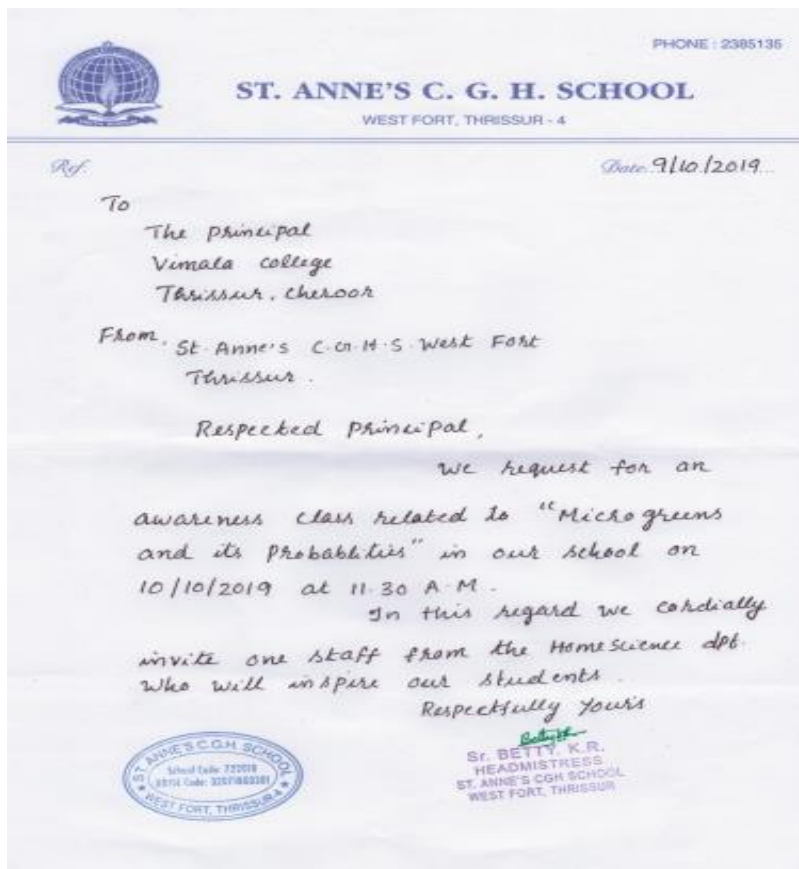 PHONE : 2385135
ST. ANNE'S C. G. H. SCHOOL
WEST FORT, THRISSUR - 4
Ref.
Date 9/10/2019
To
The Principal
Vimala College
Thrissur, Cheroor
From,
St. Anne's C.G.H.S. West Fort
Thrissur.
Respected Principal,
We request for an
awareness class related to "Microgreens
and its Probablities" in our school on
10/10/2019 at 11.30 A.M.
In this regard we cordially
invite one staff from the HomeScience dpt.
Who will inspire our students.
Respectfully Yours
Sr. BETTY. K.R.
HEADMISTRESS
ST. ANNE'S CGH SCHOOL
WEST FORT, THRISSUR
ST. ANNE'S C.G.H. SCHOOL
School Code:
Code:
WEST FORT, THRISSUR-4